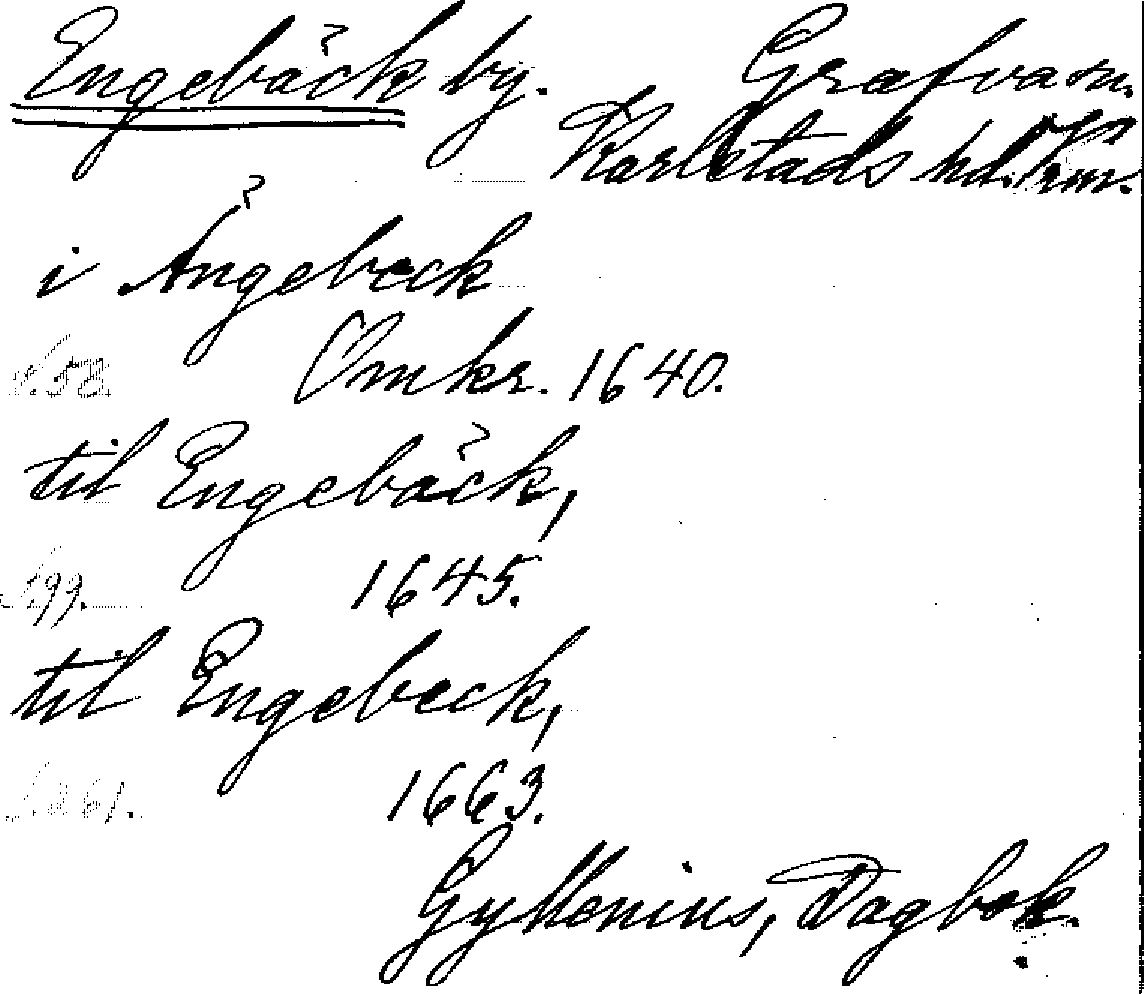 Engebäck by. Grafva sn.
Karlstads hd. Vrm.
i Ängebeck
s. 58. Omkr. 1640.
til Engebäck,
s. 99. 1645.
til Engebeck,
s. 261. 1663.
Gyllenius, Dagbok.